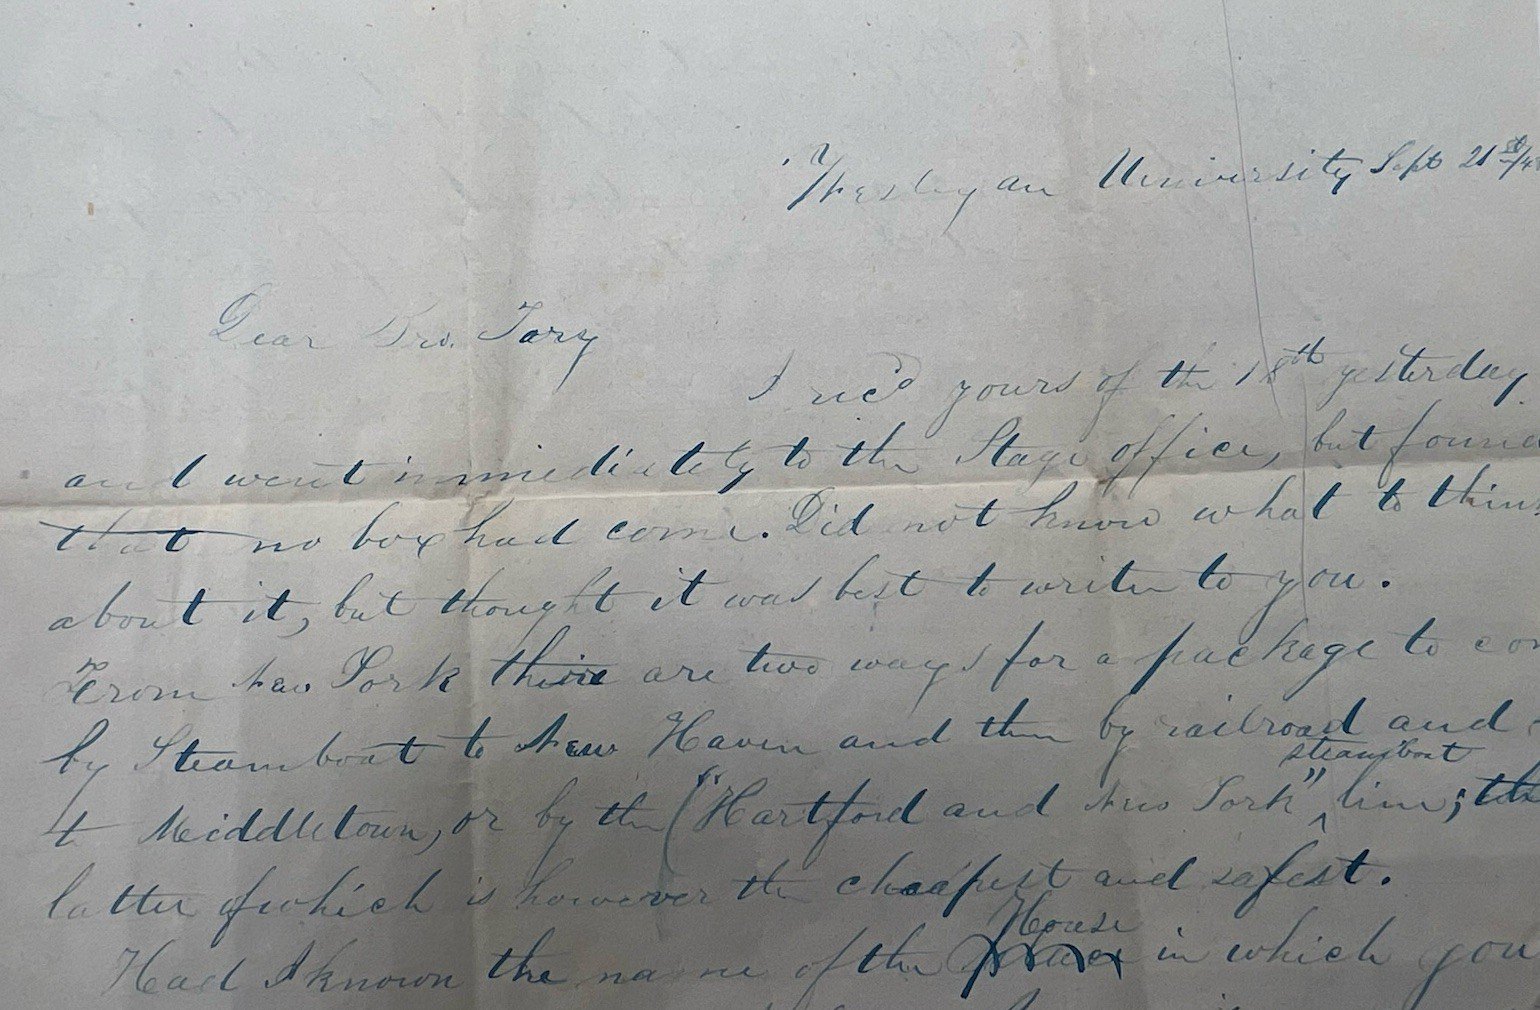 Wesleyan University Sept 21st/4
Dear Bro. Tory
I rec'd yours of the 18th yesterday
and went immedietely to the Stage office, but found
that no box had come. Did not know what to think
about it, but thought it was best to write to you.
From New York there are two ways for a package to
by Steamboat to New Haven and then by railroad and
steamboat
t Middletown, or by the ("Hartford and New York" ^ line; the
latter of which is however the cheapest and safest.
House
Had I known the name of the in which you